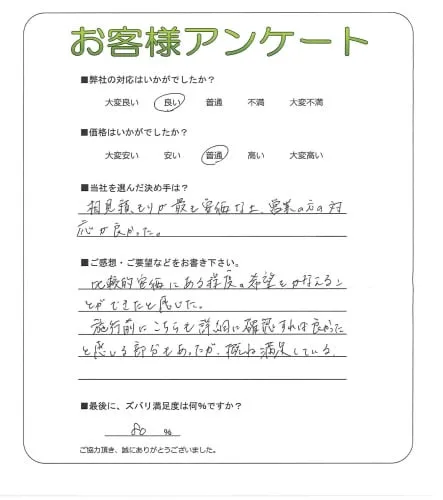 お客様アンケート
■弊社の対応はいかがでしたか?
大変良い 良い 普通 不満 大変不満
■価格はいかがでしたか?
大変安い 安い 普通 高い 大変高い
■当社を選んだ決め手は?
相見積もりが最も安価な上、営業の方の対
応が良かった。
■ご感想・ご要望などをお書き下さい。
比較的安価にある程度の希望もかなえるこ
とができたと感じた。
施行前にこちらも詳細に確認すれば良かった
と感じる部分もあったが、概ね満足している。
■最後に、ズバリ満足度は何%ですか?
80 %
ご協力頂き、誠にありがとうございました。